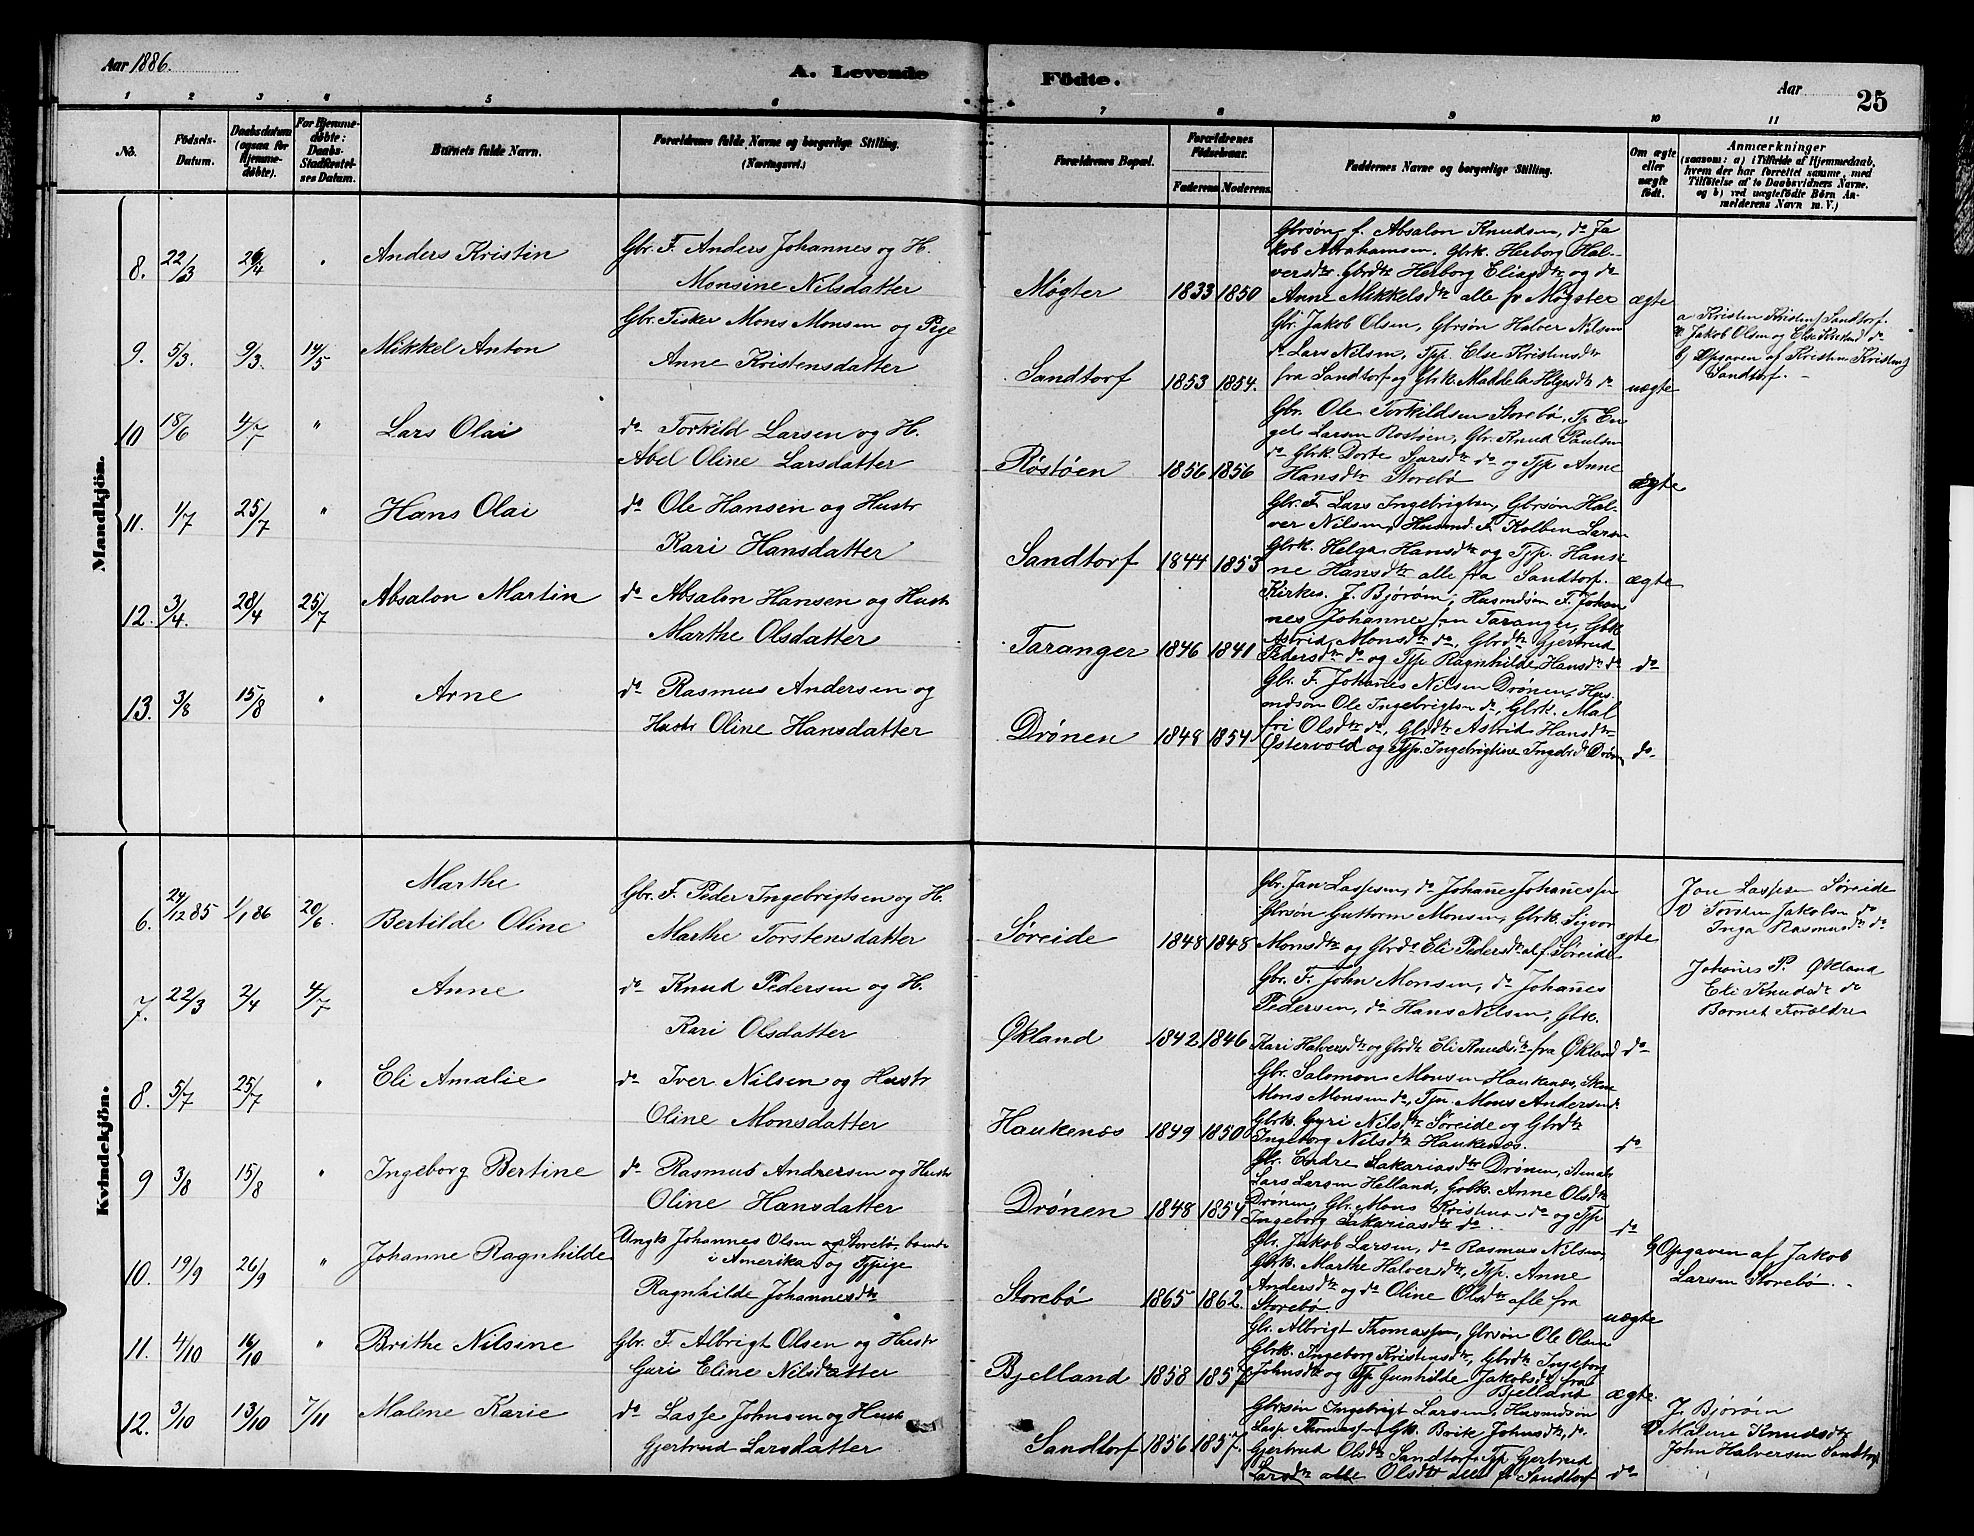 Aar 1886.
A. Levende Födte.
Aar
25
1 2 3 4 5 6 7 8 9 10 11
No.
Födsels-Datum.
Daabsdatum (ogsaa for Hjemmedøbte).
For Hjemmedøbte: Daabs-Stadfæstelses Datum.
Barnets fulde Navn.
Forældrenes fulde Navne og borgerlige Stilling. (Næringsvei.)
Forældrenes Bopæl.
Forældrenes Födselsaar.
Faderens. Moderens.
Faddernes Navne og borgerlige Stilling.
Om ægte eller uægte født.
Anmærkninger
(saasom: a) i Tilfælde af Hjemmedaab,
hvem der har forrettet samme, med
Tilföielse af to Daabsvidners Navne,
og b) ved uægtefödte Börn An-
melderens Navn m. V.)
Mandkjön.
8. 22/3 26/4 " Anders Kristin
Gbr. F. Anders Johannes og H.
Monsine Nilsdatter
Møgter 1833 1850
Gbrsøn f. Absalon Knudsen, do Ja
kob Abrahamsen, Gbrk. Herborg Hal-
versdtr. Gbrdtr Herborg Eliasdtr og do
Anne Mikkelsdtr alle fr Møgster
ægte
9. 5/3. 9/3. 14/5 Mikkel Anton
Gbr. Fisker Mons Monsen og Pige
Anne Kristensdatter
Sandtorf 1853 1854.
Gbr. Jakob Olsen, Gbrsøn Halver Nilsen
do Lars Nilsen, Tpp. Else Kristensdtr
fra Sandtorf og Gbrk. Maddela Helgesdtr do
uægte
a Kristen Kristens Sandtorf.
Jakob Olsen og Else do
b) Opgaven af Kristen Kristens
Sandtorf. -
10 18/6 4/7 " Lars Olai
do Torkild Larsen og H.
Abel Oline Larsdatter
Röstöen 1856 1856
Gbr. Ole Torkildsen Storebø, Tj. En
gel Larsen Rostøen, Gbr. Knud Paulsen
do Gbrk. Dorte Sjursdtr do og Tpp Anne
Hansdtr Storebø
ægte
11. 1/7 25/7 " Hans Olai
do Ole Hansen og Hustr
Kari Hansdatter
Sandtorf 1844 1853
Gbr. F. Lars Ingebrigtsen, Gbrsøn Hal-
ver Nilsen, Husmd. F. Kolben Larsen
Gbrk. Helga Hansdtr og Tpp. Hansi-
ne Hansdtr alle fra Sandtorf.
ægte
12. 3/4. 28/4 25/7 Absalon Martin
do Absalon Hansen og Hustr
Marthe Olsdatter
Taranger 1846 1841
Kirkes. J. Bjørøin, Husmdsøn F. Johan
nes Johannessen Taranger, Gbrk.
Astrid Monsdtr do, Gbrdtr Gjertrud
Pedersdtr do og Tpp Ragnhilde Hansdtr do
do
13. 3/8 15/8 " Arne
do Rasmus Andersen og
Hustr Oline Hansdatter
Drönen 1848 1854
Gbr. F. Johannes Nilsen Drønen, Hus-
mdsøn Ole Ingebrigtsen do, Gbrk. Mal
fri Olsdtr do, Gbrdtr Astrid Hansdtr
Østervold og Tpp. Ingebrigtine Ingebr do Drøn
do
Kvindekjön.
6. 24/12 85 1/1 86 20/6. Marthe
Bertilde Oline
Gbr. F. Peder Ingebrigtsen og H.
Marthe Torstensdatter
Søreide 1848 1848
Gbr. Jan Lassesen, do Johannes Johannessen
Gbrsøn Guttorm Monsen, Gbrk. Sigvor
Monsdtr og Gbrdtr Eli Pedersdtr al f. Søreide
ægte
Jon Lassesen Søreide
V Torsten Jakobsen do
Inga Rasmusdtr do
7. 22/3 2/4 4/7 Anne
do Knud Pedersen og H.
Kari Olsdatter
Økland 1842 1846
Gbr. F. John Monsen, do Johannes
Pedersen, do Hans Nilsen, Gbrk.
Kari Halversdtr og Gbrdtr Eli Knudsdtr fra Økland
do
Johannes P. Økland
Eli Knudsdtr do
Barnet Foreldre
8. 5/7 25/7 " Eli Amalie
do Iver Nilsen og Hustr
Oline Monsdatter
Haukenæs 1849 1850
Gbr. Salomon Monsen Haukenæs,
Mons Monsen do, Tpr. Mons Andersen do.
Gbrk. Gyri Nilsdtr Søreide og Gbrdtr
Ingeborg Nilsdtr Haukenæs.
do
9 3/8 15/8 " Ingeborg Bertine
do Rasmus Andersen og Hustr
Oline Hansdatter
Drönen 1848 1854
Gbr. Endre Sakariasdtr Drönen,
Lars Larsen Helland, Gbk. Anne Olsdtr
Drønen, Gbr. Mons Kristens do og Tpp
Ingeborg Sakariasdtr do.
do
10. 19/9 26/9 " Johanne Ragnhilde
Ungk. Johannes Olsen Storebø
i Amerika og Tjpige
Ragnhilde Johannesdtr
Storebø 1865 1862.
Gbr. Jakob Larsen, do Rasmus Nilsen,
Gbrk. Marthe Halverdtr, Tpp. Anne
Andersdtr og do Oline Olsdtr alle fra
Storebø.
uægte
b Opgaven af Jakob
Larsen Storebø. -
11. 4/10 16/10 " Brithe Nilsine
Gbr. F. Albrigt Olsen og Hustr
Guri Eline Nilsdatter
Bjelland 1858 1857
Gbr. Albrigt Thomassen, Gbrsøn Ole Olsen
Gbrk. Ingeborg Kristensdtr, Gbrdtr Ingeborg
Johnsdtr og Tp Gunhilde Jakobsdtr fra
Bjelland
ægte
12. 3/10 13/10 7/11 Malene Karie
do Lasse Johnsen og Hustr
Gjertrud Larsdatter
Sandtorf 1856 1857.
Gbrsøn Ingebrigt Larsen, Husmdsøn
Lasse Thomassen, Gk. Brite Johnsdtr, do.
Gjertrud Olsdtr Sandtorf, Tp Gjertrud
Larsdtr alle Olsdtr alle fr Sandtorf
do
J. Bjørøin
V Malene Knudsdtr
John Halversen Sandtorf